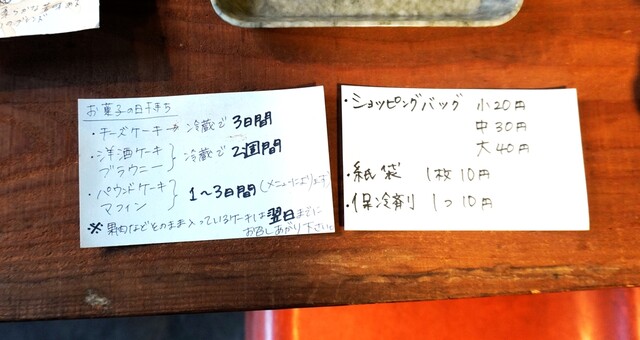 お菓子の日持ち
・チーズケーキ→冷蔵で3日間
・洋酒ケーキ
ブラウニー
冷蔵で2週間
・パウンドケーキ
マフィン
1〜3日間(メニューによります)
※果肉などそのまま入っているケーキは翌日までに
お召しあがり下さい。
・ショッピングバッグ 小20円
中30円
大40円
・紙袋 1枚10円
・保冷剤 1つ10円